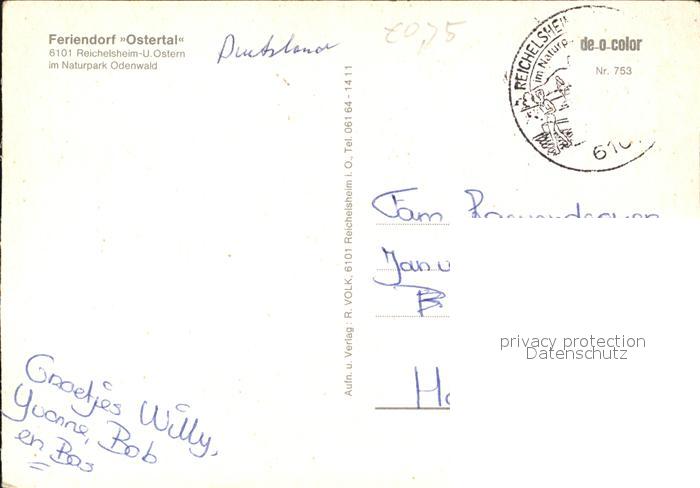 Feriendorf »Ostertal«
6101 Reichelsheim-U.Ostern
im Naturpark Odenwald
Duitsland
£0,75
REICHELSHEIM
im Naturp
610
de-o-color
Nr. 753
Aufn. u. Verlag: R. VOLK, 6101 Reichelsheim i. O., Tel. 061 64 - 14 11
Fam
Jan v
B
Ho
privacy protection
Datenschutz
Groetjes Willy,
Yvonne, Bob
en Bas